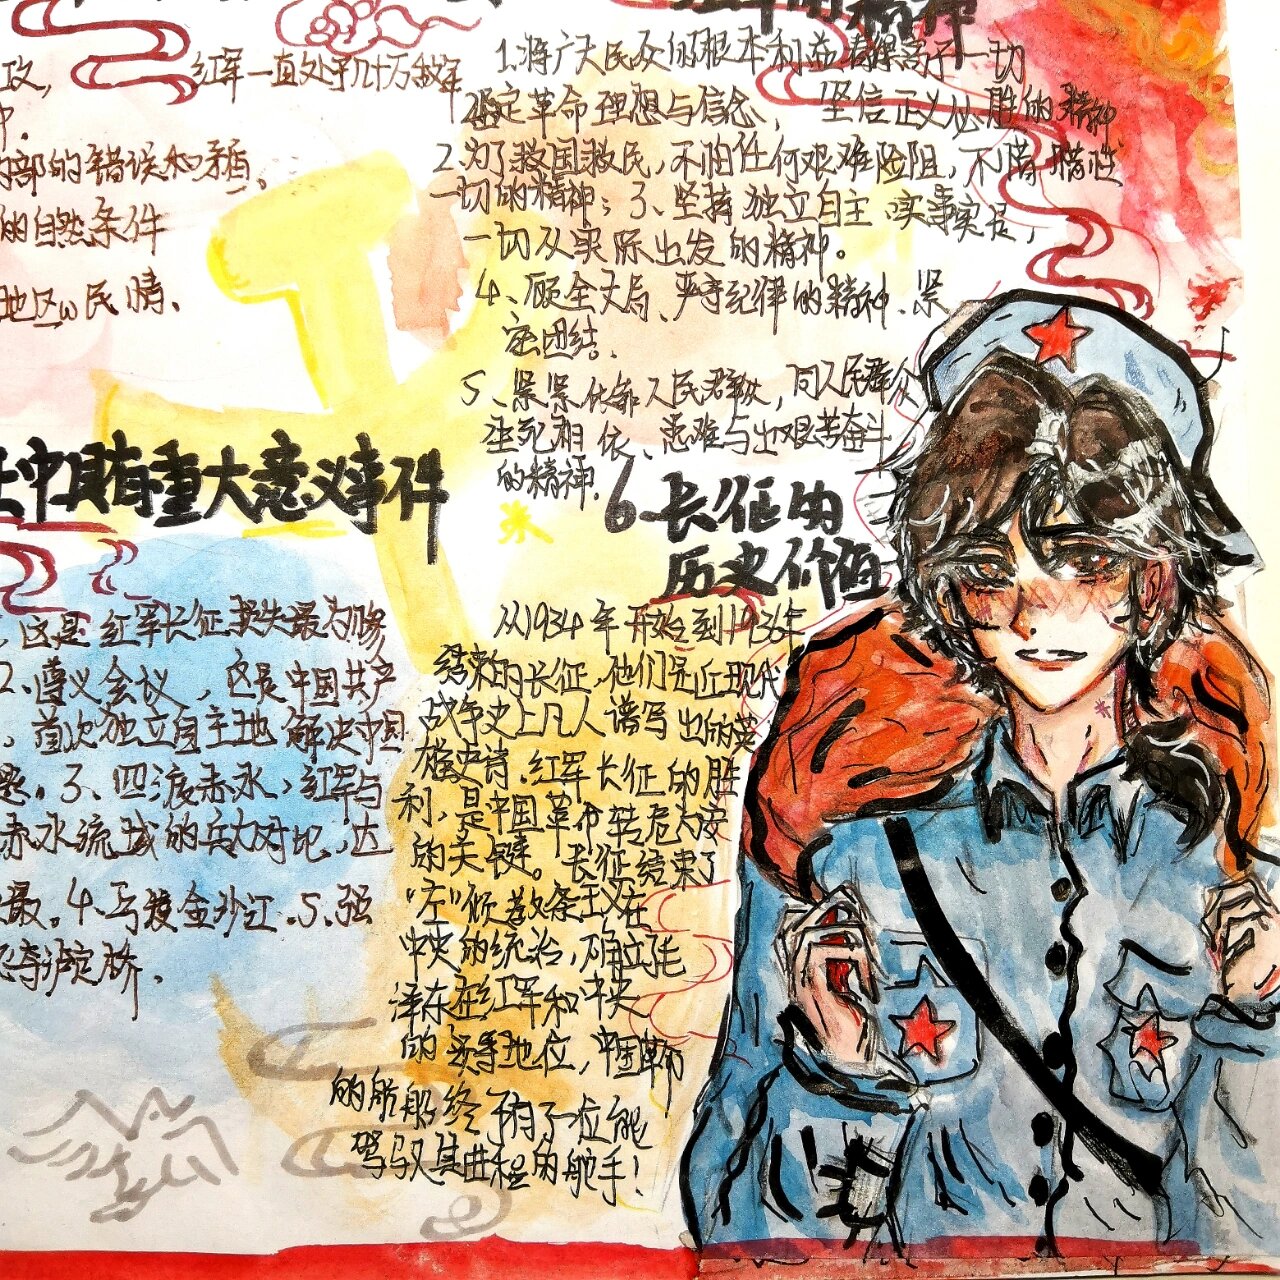 红军的精神
攻，
红军一直处于几十万敌军
中.
内部的错误和矛盾、
的自然条件
地区的民情、
1.将广大民众的根本利益看得高于一切
坚定革命理想与信念，坚信正义必胜的精神
2.为了救国救民，不怕任何艰难险阻，不惜牺牲
一切的精神；3、坚持独立自主 实事实是，
一切从实际出发的精神。
4、顾全大局、严守纪律的精神、紧
密团结.
5、紧紧依靠人民群众，同人民群众
生死相依、患难与出艰苦奋斗
的精神.
中具有重大意义事件
、这是红军长征损失最为惨
2、遵义会议，这是中国共产
，首次独立自主地解决中国
。3、四渡赤水，红军与
赤水流域的兵力对地，达
最。4、巧渡金沙江.5、强
夺泸定桥.
6 长征的
历史价值
从1934年开始到1936年
结束的长征，他们是近现代
战争史上凡人谱写出的英
雄史诗.红军长征的胜
利，是中国革命转危为安
的关键。长征结束了
“左”倾教条主义在
中央的统治，确立了毛
泽东在红军和中央
的领导地位，中国革命
的航船终于有了一位能
驾驭其曲程的舵手！